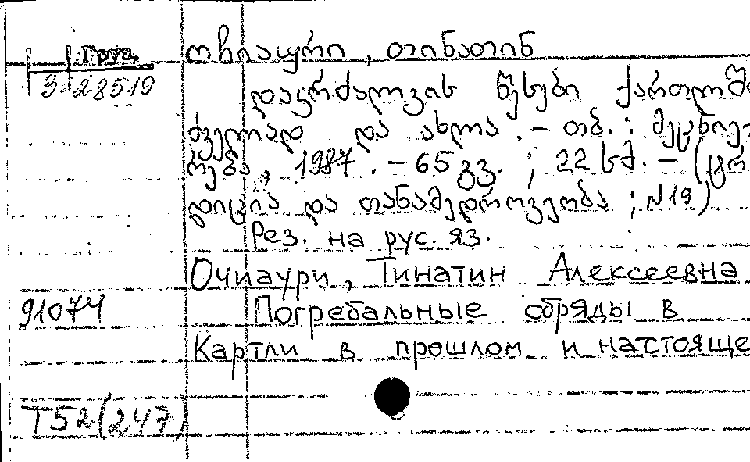 Груз.
ოჩიაური, თინათინ
3-28519
დაკრძალვის წესები ქართლში
ძველად და ახლა. - თბ.: მეცნიე-
რება, 1987. - 65 გვ.; 22 სმ. - (ტრა
დიცია და თანამედროვეობა; N19)
Рез. на рус. яз.
Очиаури, Тинатин Алексеевна
91074
Погребальные обряды в
Картли в прошлом и настояще
Т52(247)